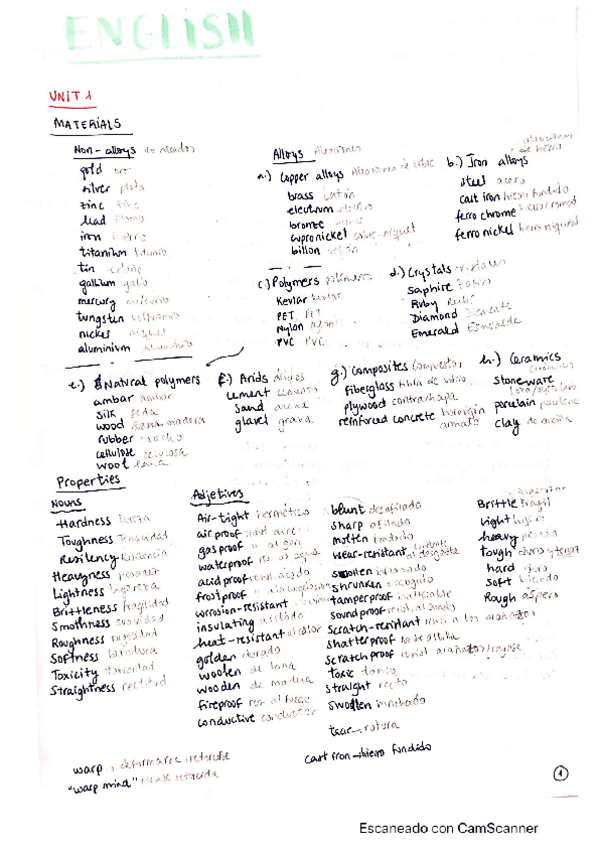 ENGLISH
UNIT 1
MATERIALS
Non-alloys no aleados
gold oro
silver plata
zinc zinc
lead plomo
iron hierro
titanium titanio
tin estaño
gallium galio
mercury mercurio
tungsten
nickel niquel
aluminium aluminio
Alloys Aleaciones
a.) Copper alloys Aleaciones de cobre
brass latón
electrum electro
bronze
cupronickel cobre-niquel
billon
b.) Iron alloys aleaciones de hierro
steel acero
cast iron hierro fundido
ferro chrome
ferro nickel
c.) Polymers polimeros
Kevlar kevlar
PET PET
Nylon nylon
PVC PVC
d.) Crystals cristales
Saphire Zafiro
Ruby Rubi
Diamond Diamante
Emerald Esmeralda
e.) Natural polymers
ambar ambar
silk seda
wood madera
rubber caucho
cellulose celulosa
wool lana
f.) Arids áridos
cement cemento
sand arena
glavel grava
g.) Composites
fiberglass fibra de vidrio
plywood contrachapa
reinforced concrete hormigón armado
h.) Ceramics
stoneware
porcelain
clay
Properties
Nouns
Hardness dureza
Toughness tenacidad
Resiliency
Heavyness pesadez
Lightness ligereza
Brittleness fragilidad
Smothness suavidad
Roughness rugosidad
Softness blandura
Toxicity toxicidad
Straightness rectitud
Adjetives
Air-tight hermético
air proof
gasproof
waterproof res. al agua
acid proof
frostproof
corrosion-resistant
insulating aislado
heat-resistant
golden dorado
woolen de lana
wooden de madera
fireproof res al fuego
conductive conductor
blunt desafilado
sharp afilado
molten fundido
wear-resistant
swollen
shrunken
tamperproof
soundproof
scratch-resistant
shatterproof
scratchproof
toxic tóxico
straight recto
swollen hinchado
tear→rotura
Brittle fragil
Light ligero
heavy pesado
tough
hard duro
soft blando
Rough aspero
warp → deformarse
"warp mind" mente retorcida
cast iron→hierro fundido
1
Escaneado con CamScanner